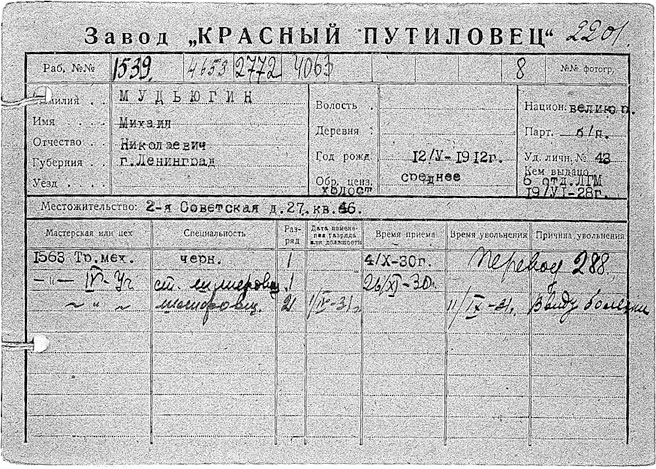 Завод „КРАСНЫЙ ПУТИЛОВЕЦ“ 2201
Раб. №№ 1539 4653 2772 4063 8 №№ фотогр.
Фамилия МУДЬЮГИН Волость Национ. великор.
Имя Михаил Деревня Парт. б/п.
Отчество Николаевич Год рожд. 12/V-1912г. Уд. личн. № 43
Губерния г. Ленинград Обр. ценз. среднее Кем выдано
Уезд холост 6 отд. ЛГМ
19/VI-28г.
Местожительство: 2-я Советская д. 27. кв. 46.
Мастерская или цех Специальность Разряд Дата изменения разряда или должности Время приема Время увольнения Причина увольнения
1563 Тр. мех. черн. 1 4/X-30г. перевод 288
-"- IV- 1 26/XI-30г.
" " 2 1/IV-31г. 11/IX-31г. Ввиду болезни